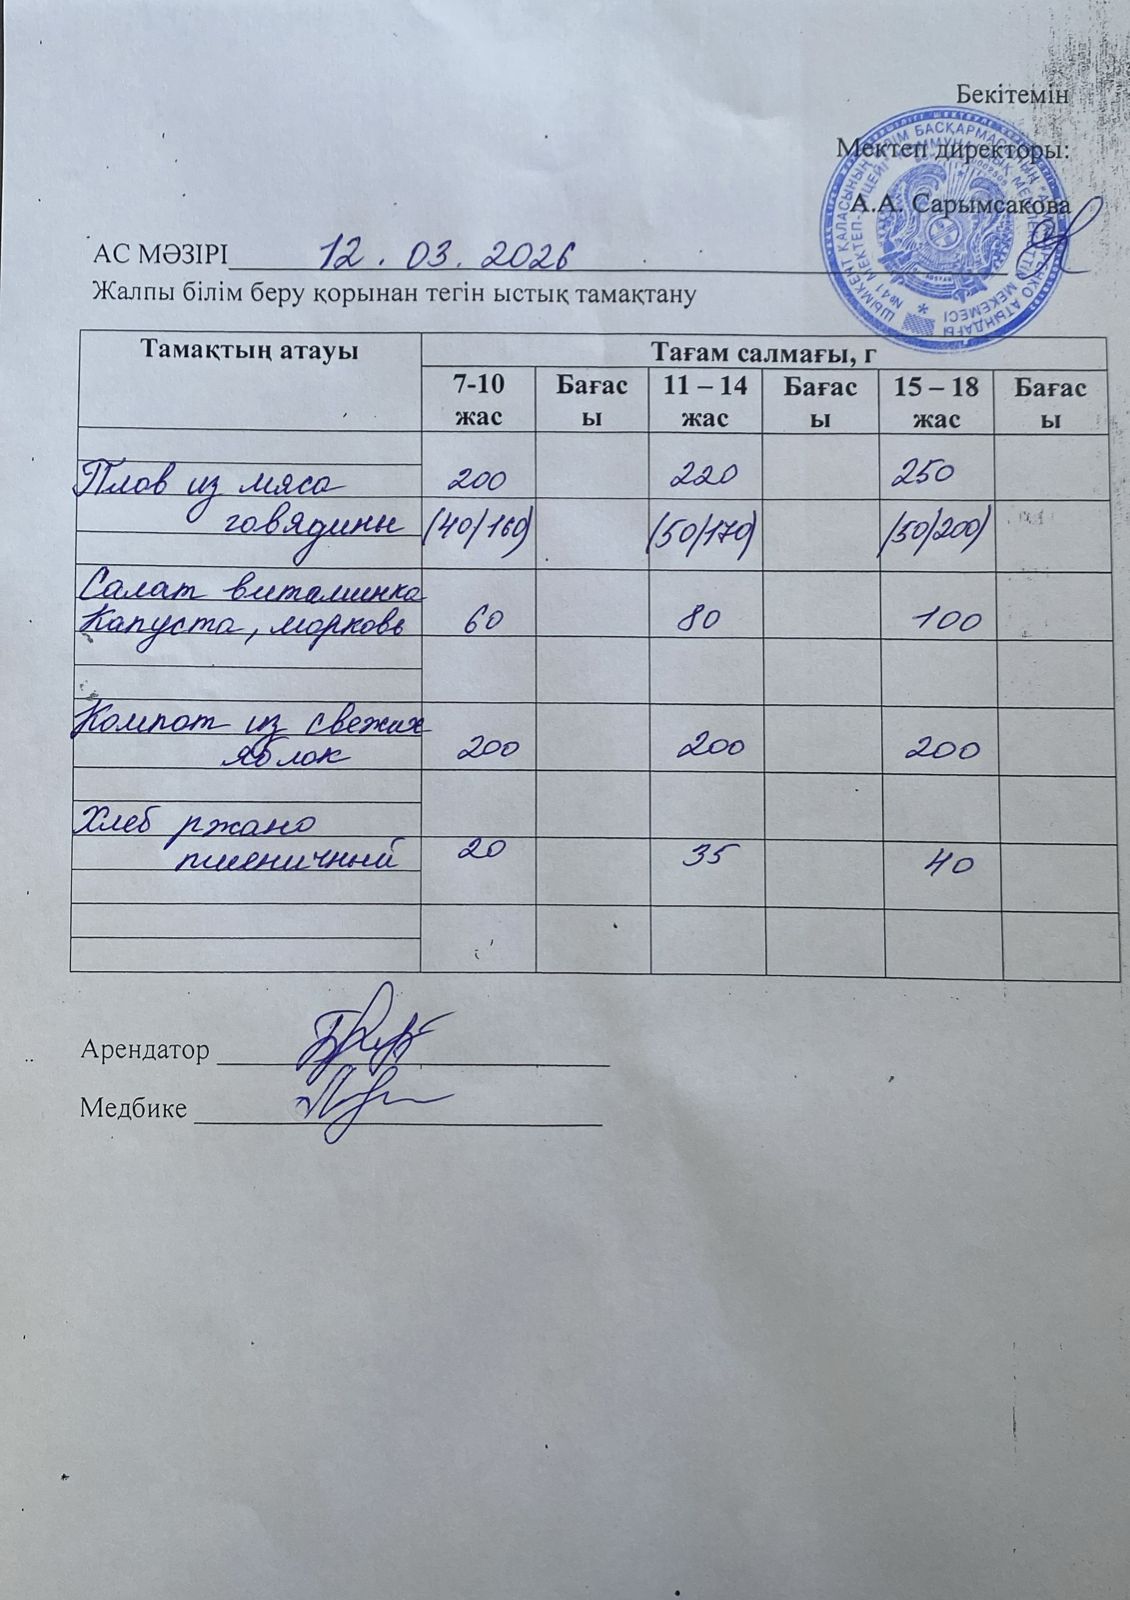 Бекітемін
Мектеп директоры:
А.А. Сарымсакова
АС МӘЗІРІ 12.03.2026
Жалпы білім беру қорынан тегін ыстық тамақтану
Тамақтың атауы Тағам салмағы, г
7-10 жас Бағасы 11 – 14 жас Бағасы 15 – 18 жас Бағасы
Плов из мяса 200 220 250
говядины (40/160) (50/170) (50/200)
Салат витаминка
Капуста, морковь 60 80 100
Компот из свежих
яблок 200 200 200
Хлеб ржано
пшеничный 20 35 40
Арендатор
Медбике